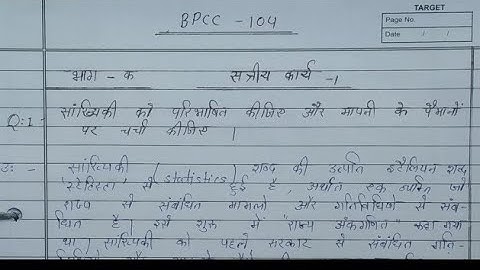 TARGET
Page No.
Date / /
BPCC - 104
भाग - क सत्रीय कार्य -1
Q:1- सांख्यिकी को परिभाषित कीजिए और मापनी के पैमानों
पर चर्चा कीजिए ।
उ: - सांख्यिकी (statistics) शब्द की उत्पत्ति इटैलियन शब्द
से हुई है, अर्थात एक व्यक्ति जो
राज्य से संबंधित मामलो और गतिविधियों से संब-
धित है। इसे शुरू में "राज्य अंकगणित" कहा गया
था। सांख्यिकी को पहले सरकार से संबंधित गति-